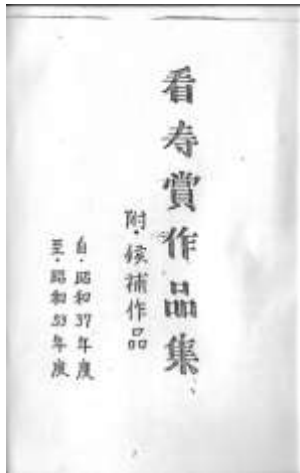 看寿賞作品集
附・候補作品
自・昭和37年度
至・昭和53年度